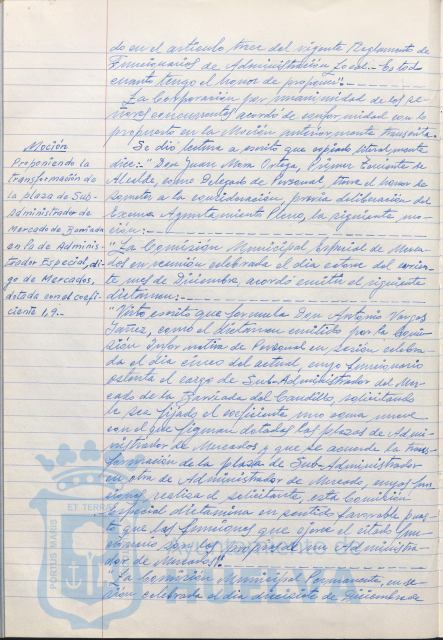 do en el articulo trece del vigente Reglamento de
Funcionarios de Administración Local.- Es todo
cuanto tengo el honor de proponer".-
La Corporación por unanimidad de los se-
ñores concurrentes acordó de conformidad con lo
propuesto en la Moción anteriormente transcrita.
Moción
Proponiendo la
transformación de
la plaza de Sub-
administrador de
Mercado de Barriada
en la de Adminis-
trador Especial, di-
go de Mercados,
dotada con el coefi-
ciente 1,9.-
Se dió lectura a escrito que copiado literalmente
dice: "Don Juan Mora Ortega, Primer Teniente de
Alcalde, como Delegado de Personal, tiene el honor de
someter a la consideración, previa deliberación del
Excmo. Ayuntamiento Pleno, la siguiente mo-
ción:
"La Comisión Municipal Especial de Merca-
dos en reunión celebrada el día catorce del corrien-
te, mes de Diciembre, acordó emitir el siguiente
dictamen:-
"Visto escrito que formula Don Antonio Vargas
Yañez, como el dictamen emitido por la Comi-
sión Informativa de Personal en sesión celebra-
da el día cinco del actual, cuyo funcionario
ostenta el cargo de Sub-Administrador del Mer-
cado de la Barriada del Caudillo, solicitando
le sea fijado el coeficiente uno coma nueve
con el que figuran dotadas las plazas de Admi-
nistrador de Mercados y que se acuerde la trans-
formación de la plaza de Sub-Administrador
en otra de Administrador de Mercado, cuyas fun-
ciones realiza el solicitante, esta Comisión
Especial dictamina en sentido favorable pues-
to que las funciones que ejerce el citado fun-
cionario son las propias de un Administra-
dor de Mercados".
"La Comisión Municipal Permanente, en se-
sión celebrada el día diecisiete de Diciembre de
ET TERRAE
PORTUS MARIS